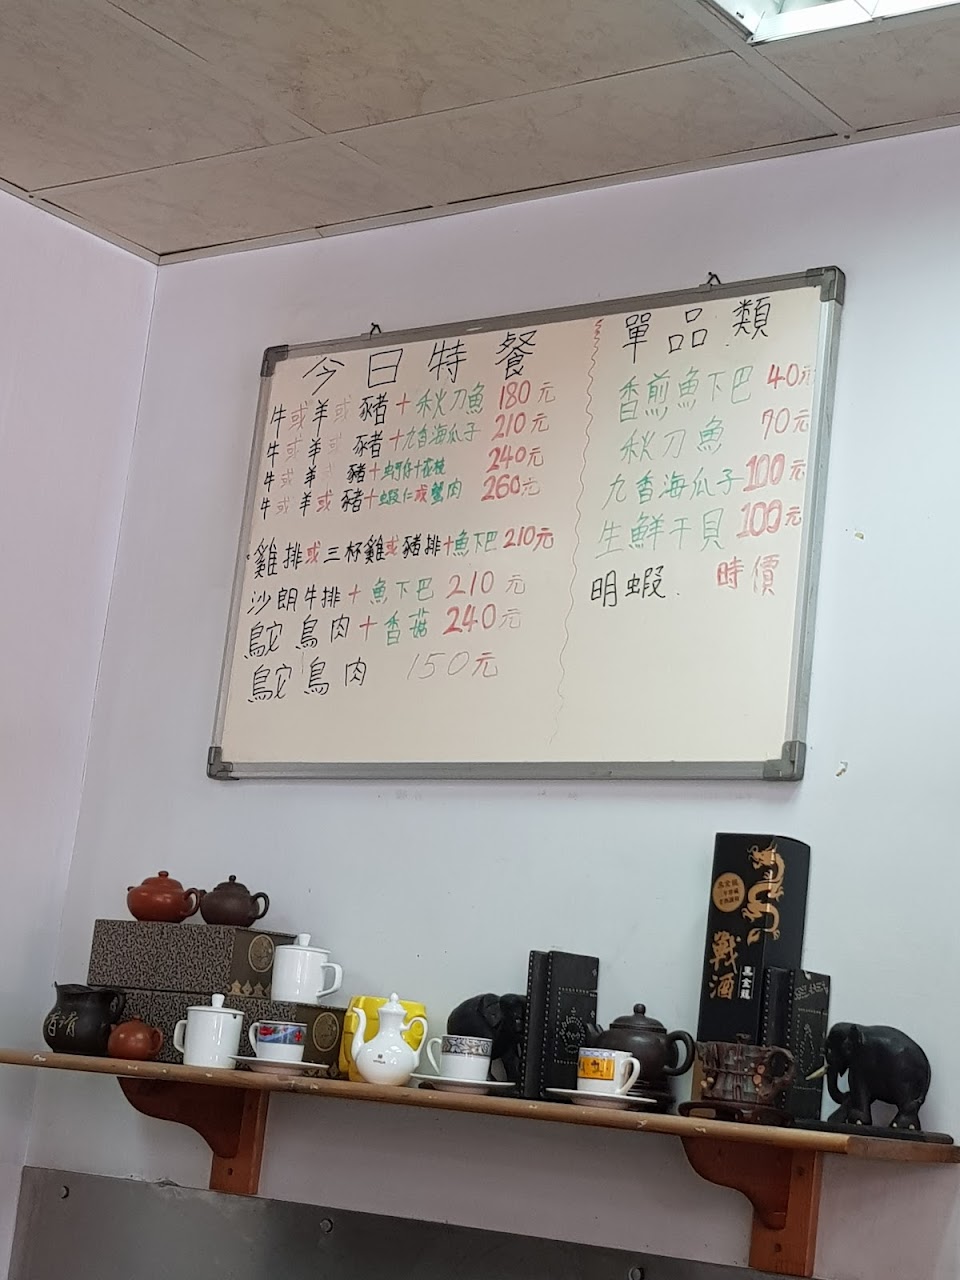 今日特餐
牛或羊或豬+秋刀魚 180元
牛或羊或豬+九香海瓜子 210元
牛或羊 豬+蚵仔+花枝 240元
牛或羊或豬+蝦仁或蟹肉 260元
雞排或三杯雞或豬排+魚下巴 210元
沙朗牛排+魚下巴 210元
鴕鳥肉+香菇 240元
鴕鳥肉 150元
單品類
香煎魚下巴 40元
秋刀魚 70元
九香海瓜子 100元
生鮮干貝 100元
明蝦. 時價
戰酒
黑金龍